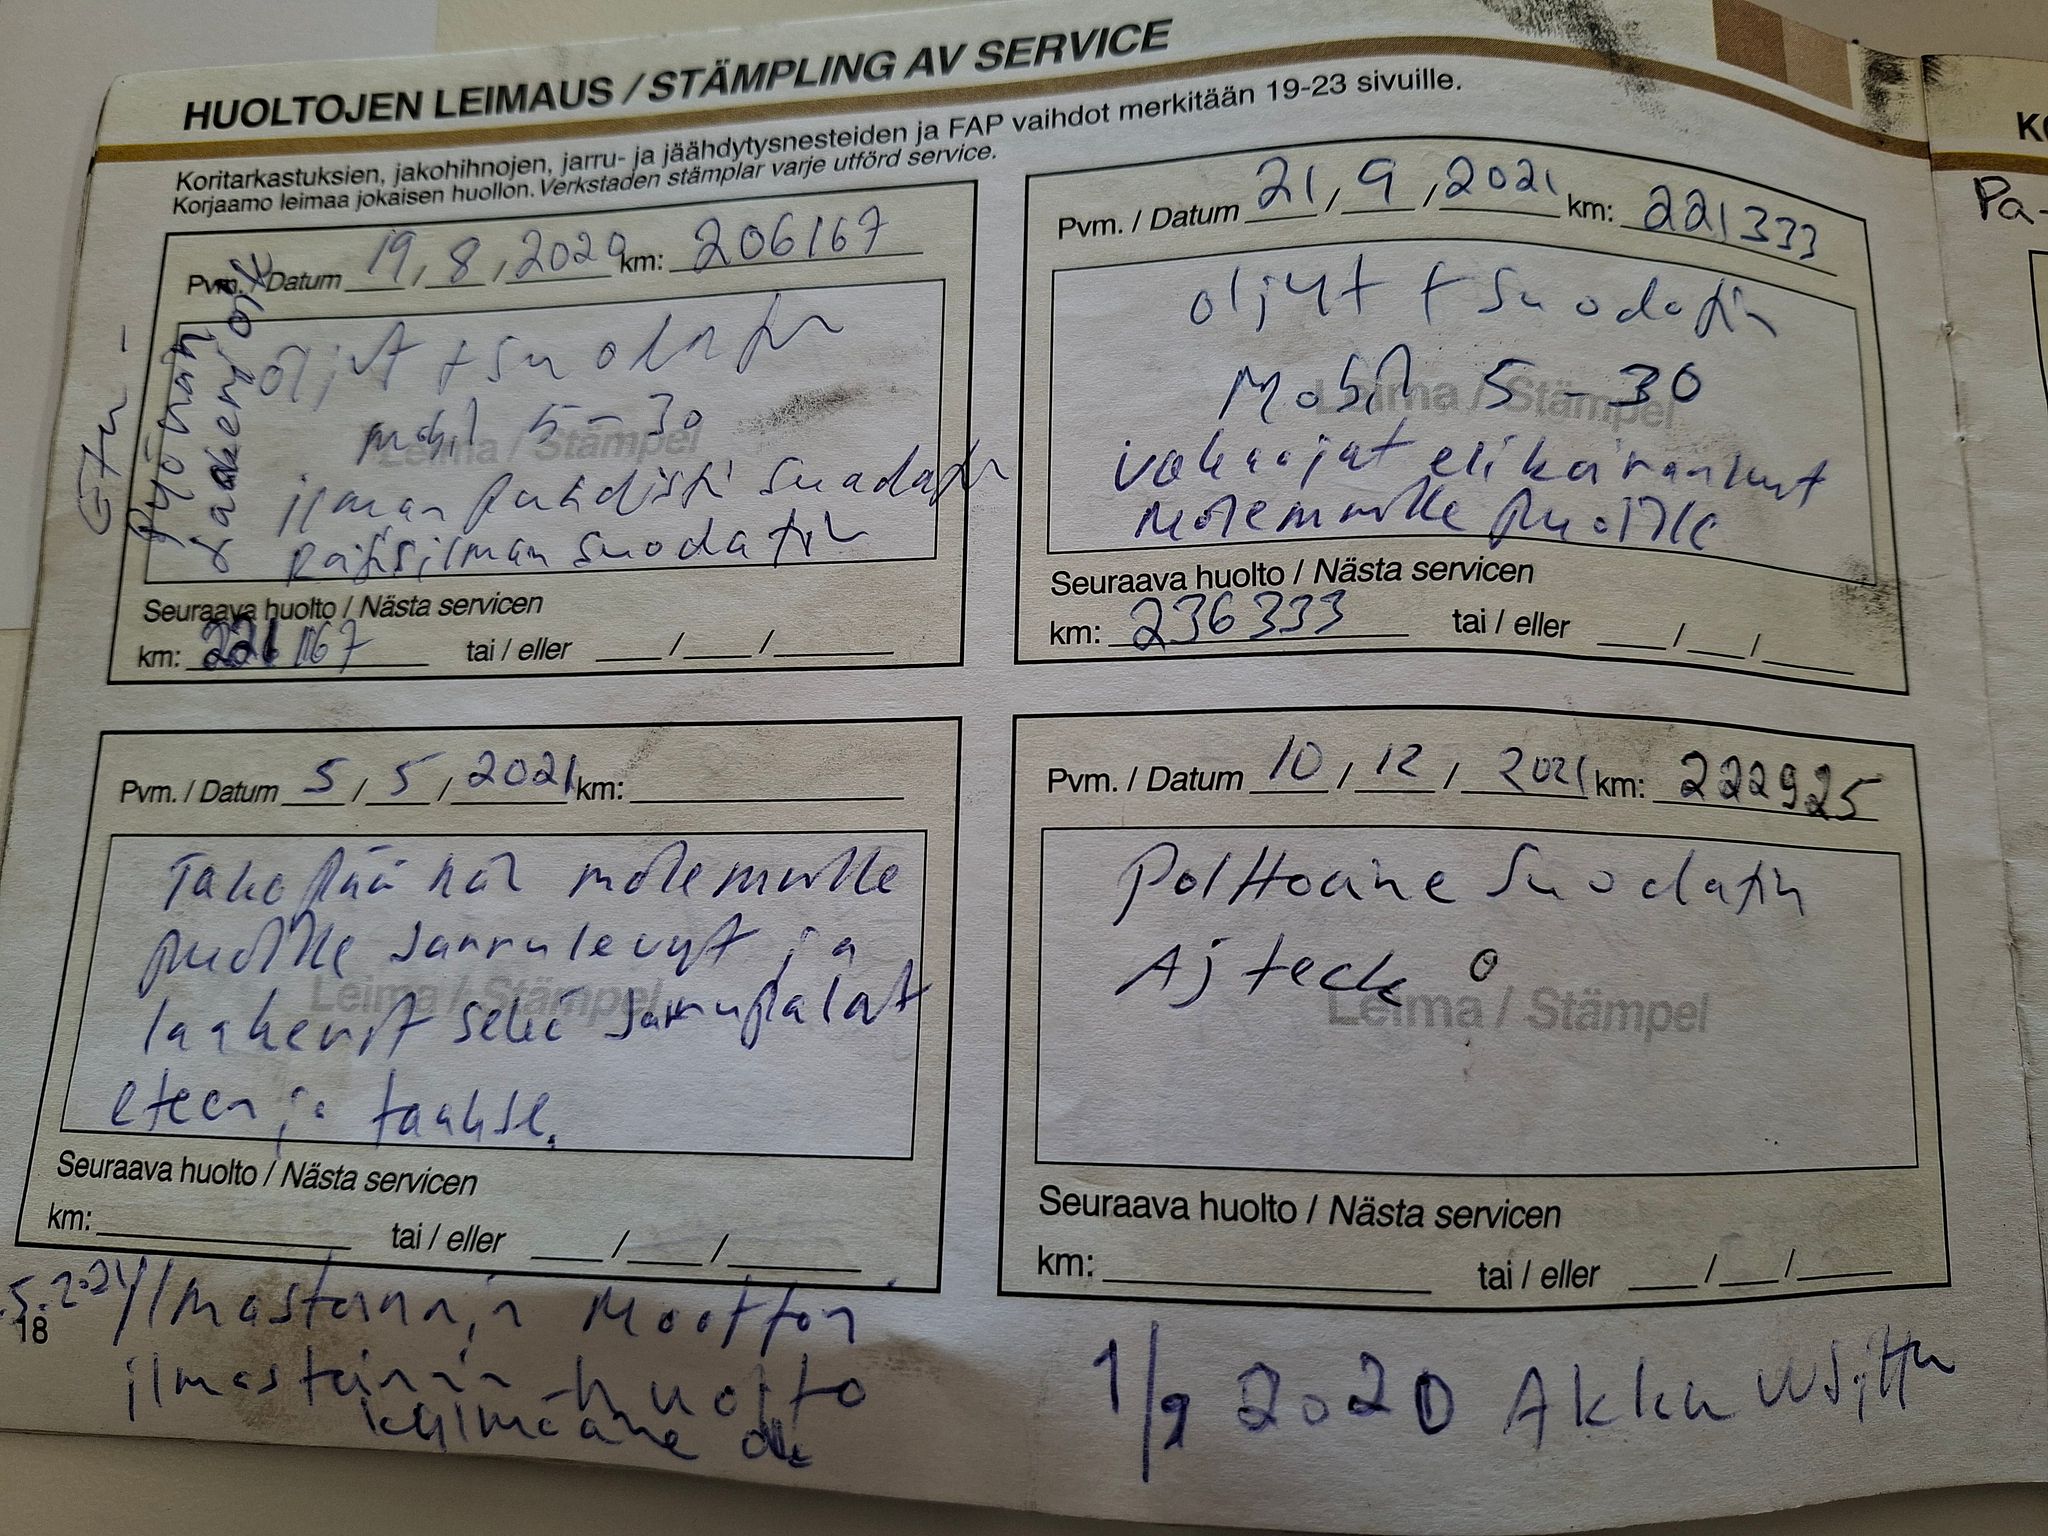 HUOLTOJEN LEIMAUS / STÄMPLING AV SERVICE
Koritarkastuksien, jakohihnojen, jarru- ja jäähdytysnesteiden ja FAP vaihdot merkitään 19-23 sivuille.
Korjaamo leimaa jokaisen huollon. Verkstaden stämplar varje utförd service.
Pvm. / Datum 19 / 8 / 2020 km: 206167
Etu-
Pyörän
öljyt + suodatin
mobil 5-30
Leima / Stämpel
ilman puhdisti suodatin
suodatin
Seuraava huolto / Nästa servicen
km: 221167 tai / eller __/__/__
Pvm. / Datum 21 / 9 / 2021 km: 221333
öljyt + suodatin
Mobil 5-30
Leima / Stämpel
molemmille puolille
Seuraava huolto / Nästa servicen
km: 236333 tai / eller __/__/__
Pvm. / Datum 5 / 5 / 2021 km:
molemmille
puolille Jarrulevyt ja
Leima / Stämpel
laakerit sekä Jarrupalat
eteen ja taakse.
Seuraava huolto / Nästa servicen
km: tai / eller __/__/__
Pvm. / Datum 10 / 12 / 2021 km: 222925
Polttoaine Suodatin
Leima / Stämpel
Seuraava huolto / Nästa servicen
km: tai / eller __/__/__
Ilmastoinnin Moottori
ilmastoinnin huolto
kylmäaine
1/9 2020 Akku
18
Pa-